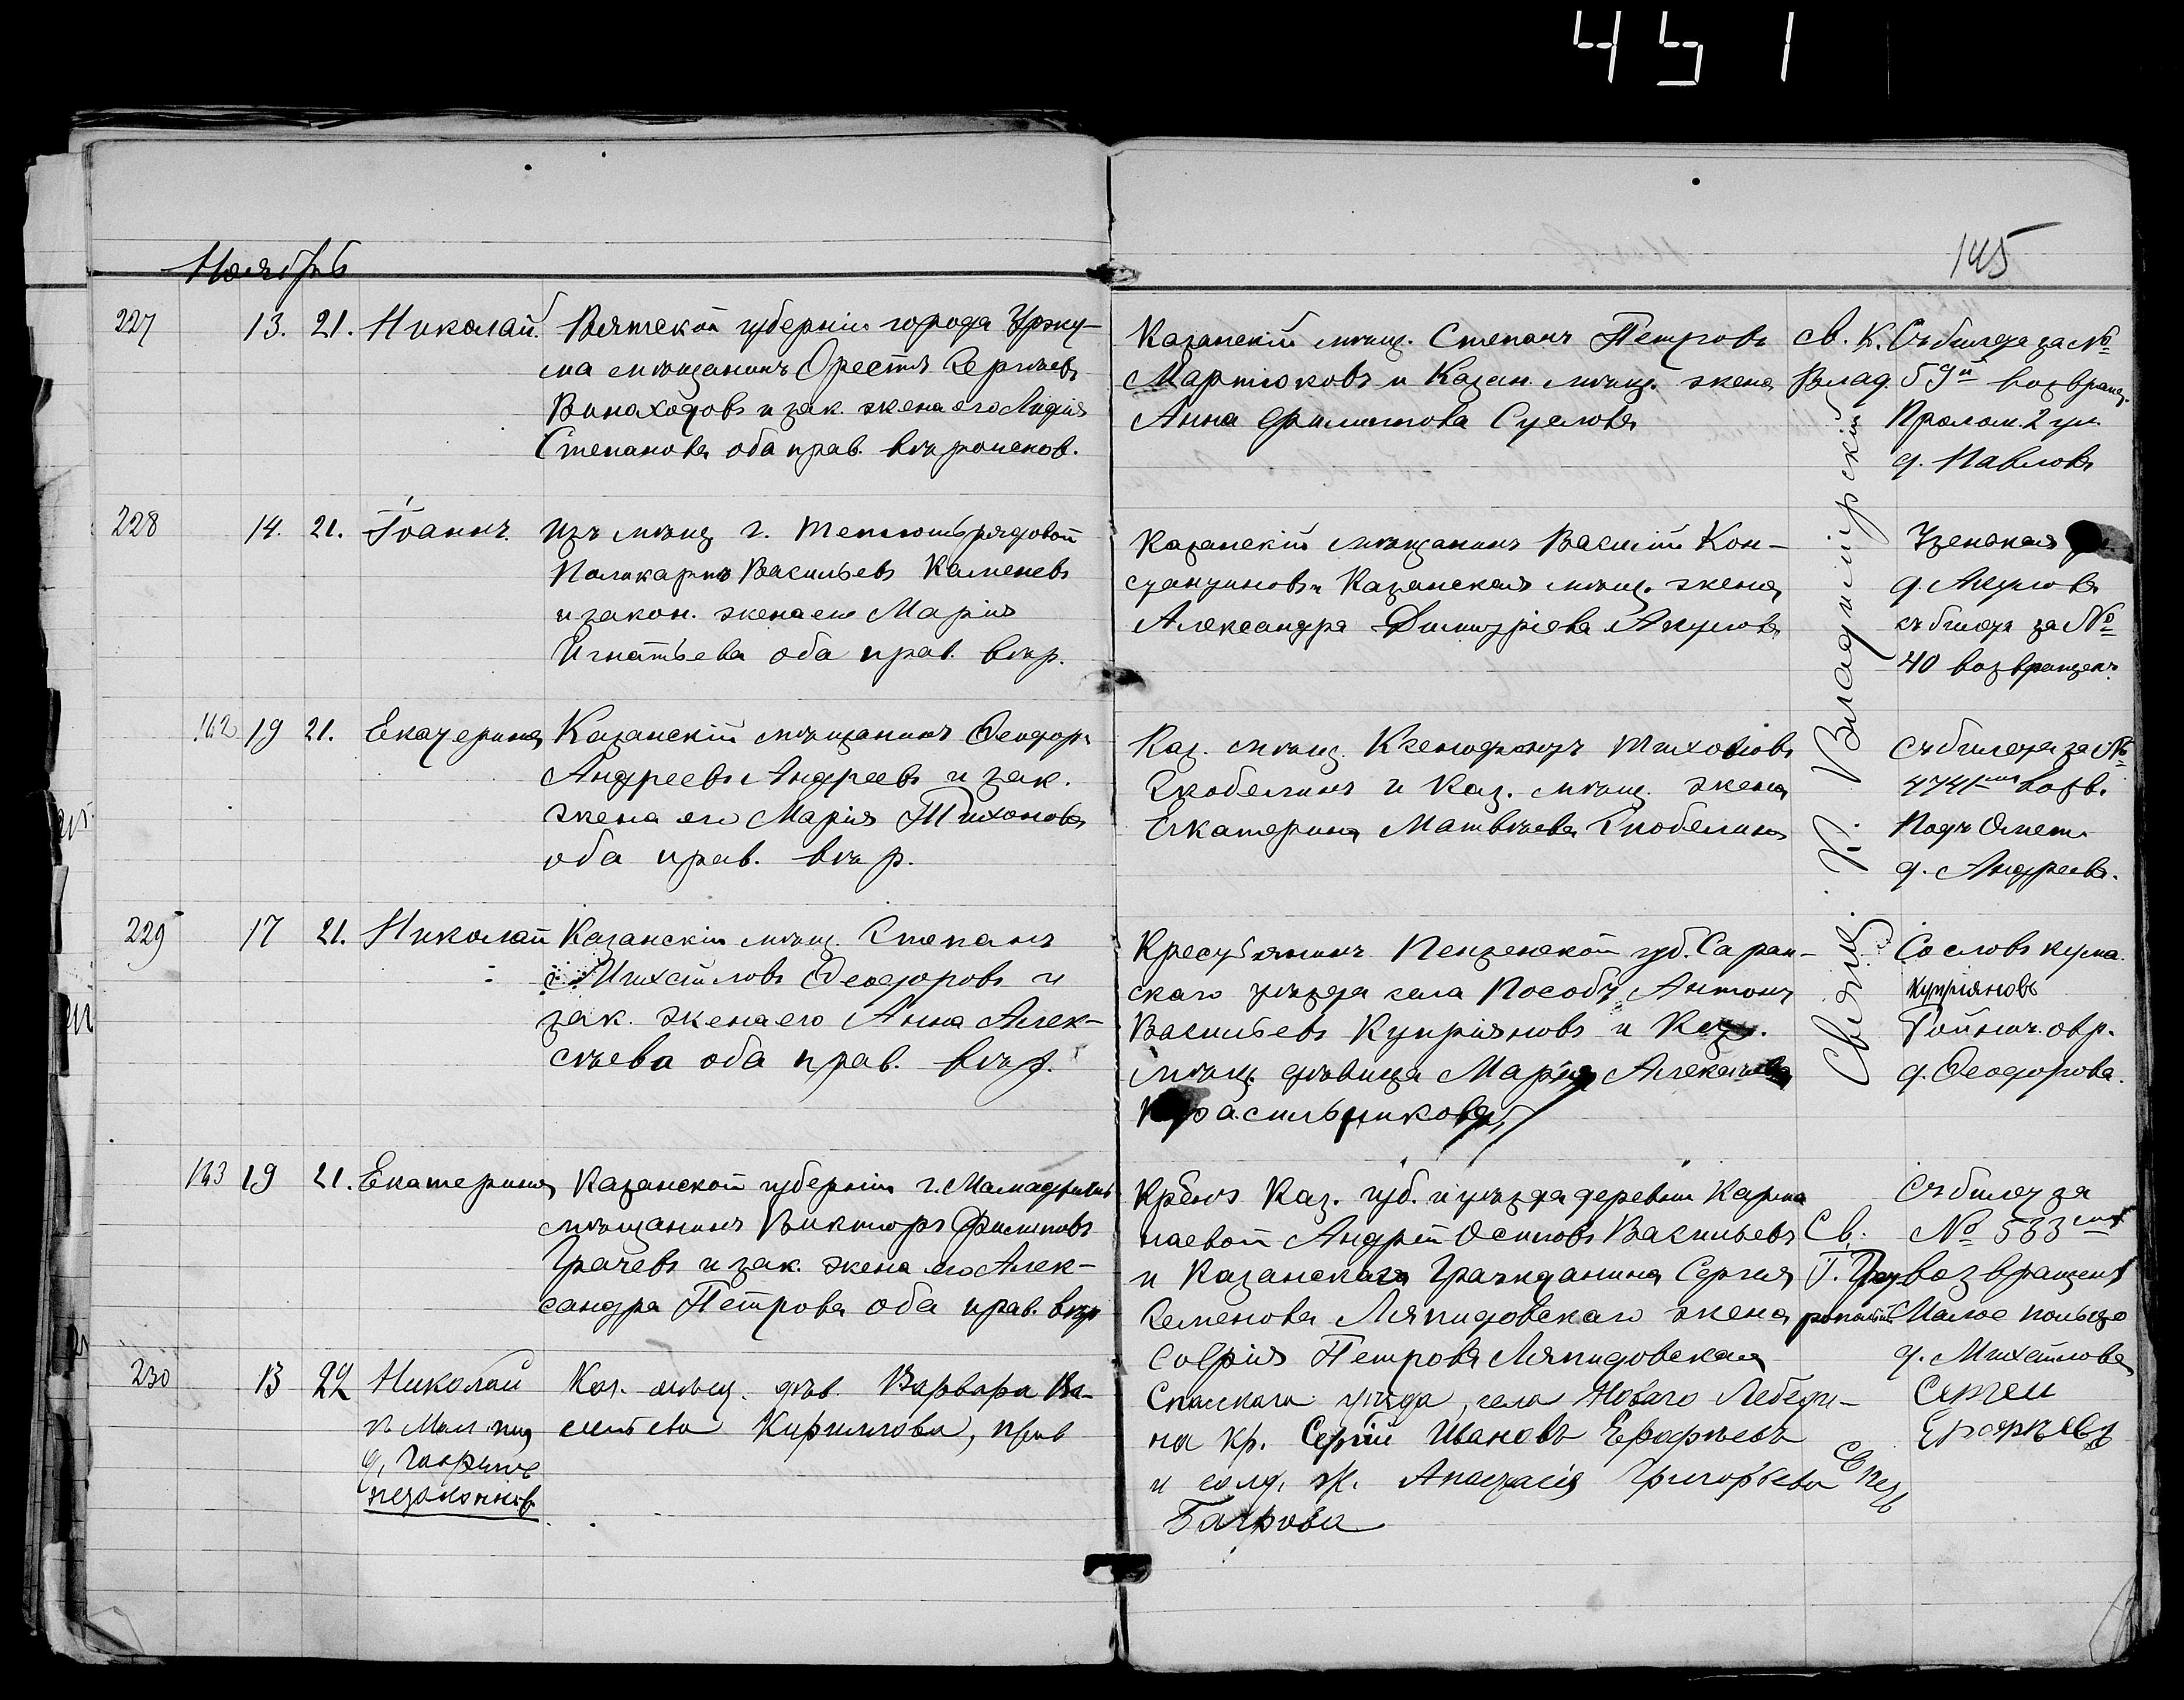 451
145
Ноябрь
227 13. 21. Николай. Вятской губерніи города Уржу-
ма мѣщанинъ Орестъ Сергѣевъ
Винаходовъ и зак. жена его Лидія
Степанова оба прав. вѣроисповед.
Казанскій мѣщ. Степанъ Петровъ
Мартюковъ и Казан. мѣщ. жена
Анна Филиппова Суслова
Св. К.
Влад.
Съ билета за №
59й возвращ.
Пролом. 2 ул.
д. Павлова
228 14. 21. Іоаннъ. Изъ мѣщ г.
Поликарпъ Васильевъ Каменевъ
и закон. жена его Марія
Игнатьева оба прав. вѣр.
Казанскій мѣщанинъ Василій Кон-
стантиновъ и Казанская мѣщ. жена
Александра Димитріева Акулова
д. Акулова
съ билета за №
40 возвращенъ.
162 19 21. Екатерина Казанскій мѣщанинъ Ѳеодоръ
Андреевъ Андреевъ и зак.
жена его Марія Тихонова
оба прав. вѣр.
Каз. мѣщ. Ксенофонтъ Тихоновъ
Скобелинъ и Каз. мѣщ. жена
Екатерина Матвѣева Скобелина
Съ билета за №
4741 возв.
Подъ
д. Андреева.
229 17 21. Николай Казанскій мѣщ. Степанъ
Михайловъ Ѳеодоровъ и
зак. жена его Анна Алек-
сѣева оба прав. вѣр.
Крестьянинъ Пензенской губ. Саран-
скаго уѣзда села Пособъ Антонъ
Васильевъ Купріяновъ и Каз.
мѣщ. дѣвица Марія Алексѣева
Красильникова
Со словъ кума
Купріяновъ
д. Ѳеодорова.
Свящ. К. Владимірскій
163 19 21. Екатерина Казанской губерніи г. Мамадышъ
мѣщанинъ Викторъ Филиповъ
Грачевъ и зак. жена его Алек-
сандра Петрова оба прав. вѣр
Кр-нъ Каз. губ. и уѣзда деревни Карма
наевой Андрей Осиповъ Васильевъ
и Казанскаго Гражданина Сергія
Семенова Ляпидовскаго жена
Софія Петрова Ляпидовская
Св.
Съ билета за
№ 533
возвращенъ
д. Михайлова
230 13 22 Николай
незаконнов.
Каз. мѣщ. дѣв. Варвара Ва-
сильева Кириллова, прав
Спасскаго уѣзда, села Новаго Лебеди-
на кр. Сергій Ивановъ Ерофѣевъ
и солд. ж. Анастасія Григорьева
Багрова
Сергей
Ерофѣевъ